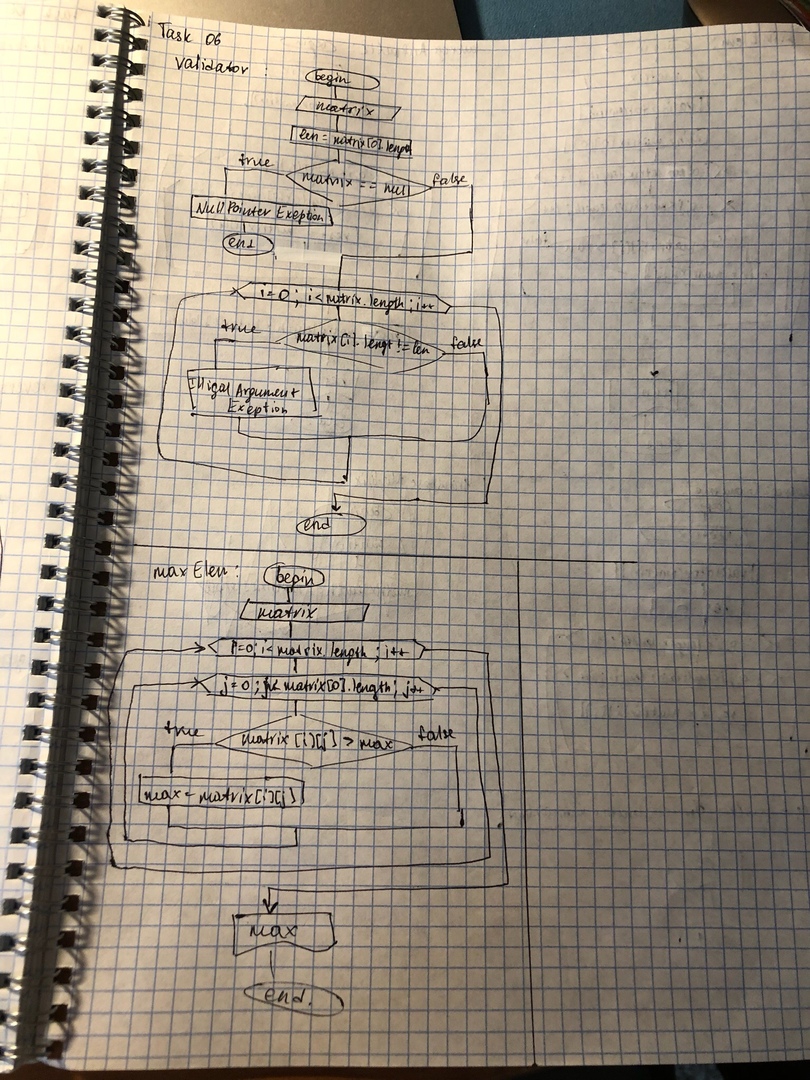 Task 06
validator :
begin
matrix
len = matrix[0].length
true
matrix == null
false
Null Pointer Exeption
end
i=0 ; i<matrix.length ; i++
true
matrix[i].lengt != len
false
Illigal Argument
Exeption
end
max Elen :
begin
matrix
i=0; i<matrix.length ; i++
j=0 ; j< matrix[0].length; j++
true
matrix [i][j] > max
false
max = matrix[i][j]
max
end.